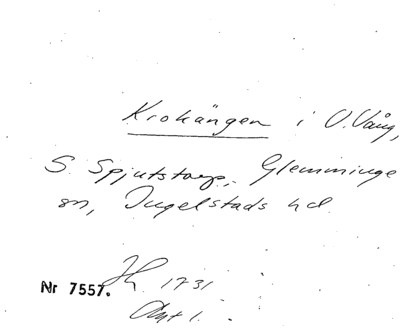 Krohängen i V. Vång,
S. Spjutstorp, Glemminge
sn, Ingelstads hd
Nr 7557. 1731
Akt 1.